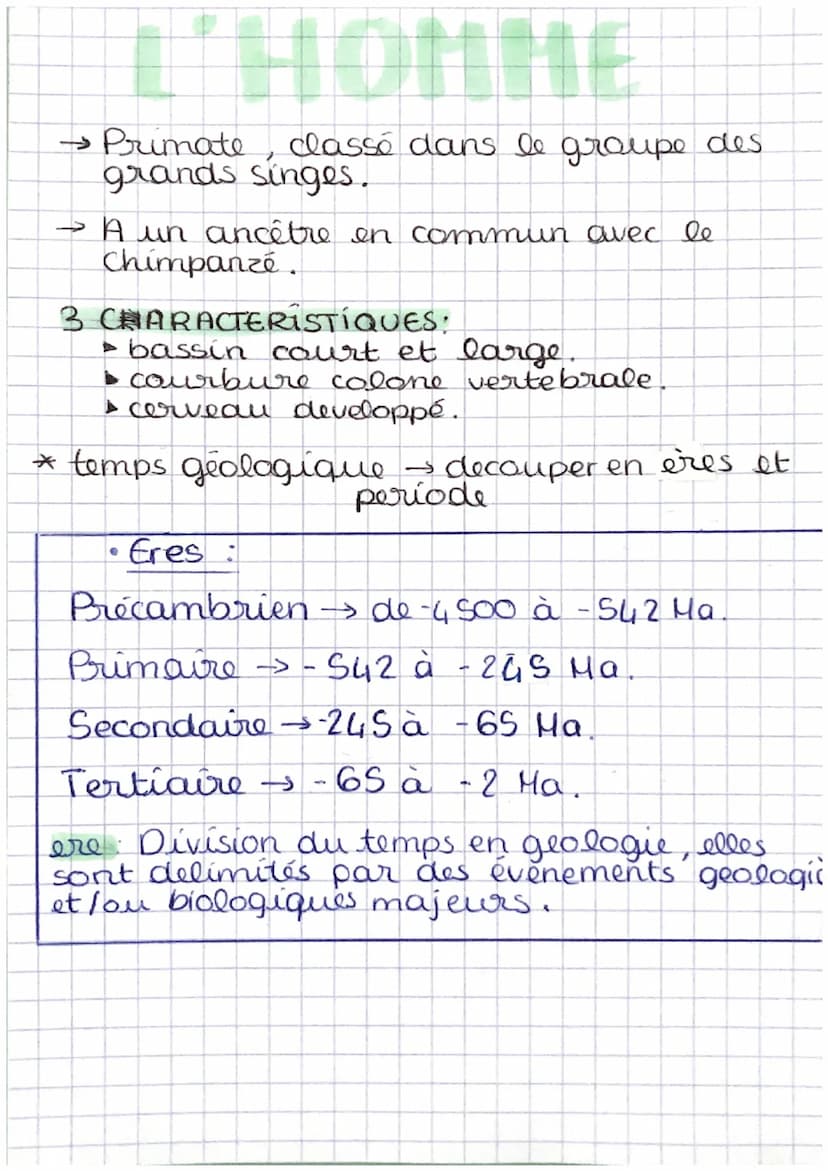 L'HOMME
→ Primate, classé dans le groupe des
grands singes.
→ A un ancêtre en commun avec le
Chimpanzé.
3 CHARACTERISTIQUES:
▸ bassin court et large.
▸ courbure colone vertebrale.
▸ cerveau developpé.
* temps géologique → decouper en ères et
periode
• Eres :
Précambrien → de -4500 à -542 Ma.
Primaire → -542 à -245 Ma.
Secondaire → -245 à -65 Ma.
Tertiaire → -65 à -2 Ma.
ere: Division du temps en geologie, elles
sont delimités par des évènements geologic
et/ou biologiques majeurs.